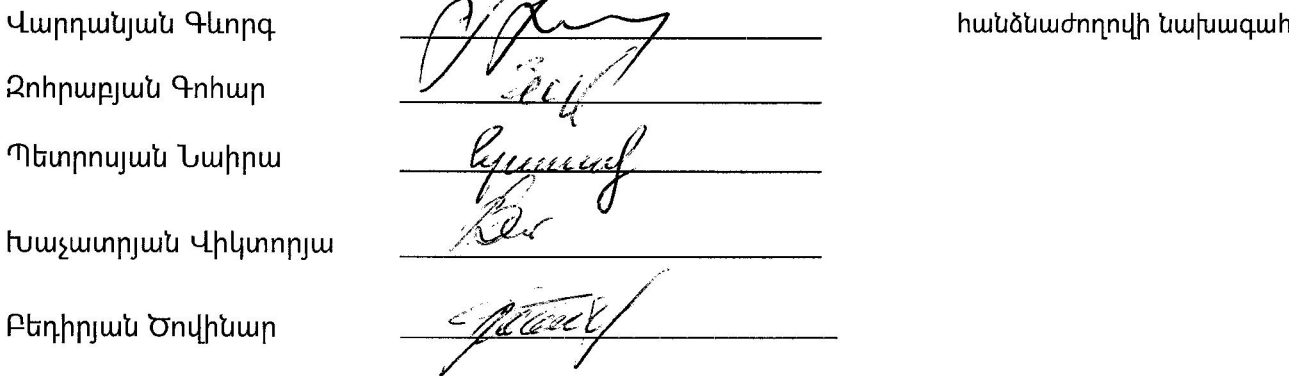 Վարդանյան Գևորգ հանձնաժողովի նախագահ
Զոհրաբյան Գոհար
Պետրոսյան Նաիրա
Խաչատրյան Վիկտորյա
Բեդիրյան Ծովինար